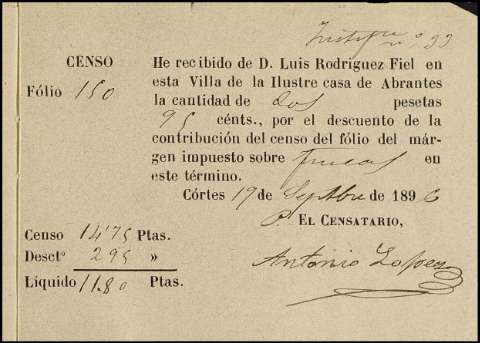 nº 33
CENSO
Fólio 150
He recibido de D. Luis Rodríguez Fiel en
esta Villa de la Ilustre casa de Abrantes
la cantidad de dos pesetas
95 cénts., por el descuento de la
contribución del censo del fólio del már-
gen impuesto sobre fincas en
este término.
Córtes 19 de Septbre de 1896
P. EL CENSATARIO,
Antonio Lopez
Censo 14'75 Ptas.
Desctº 295 »
Líquido 11.80 Ptas.